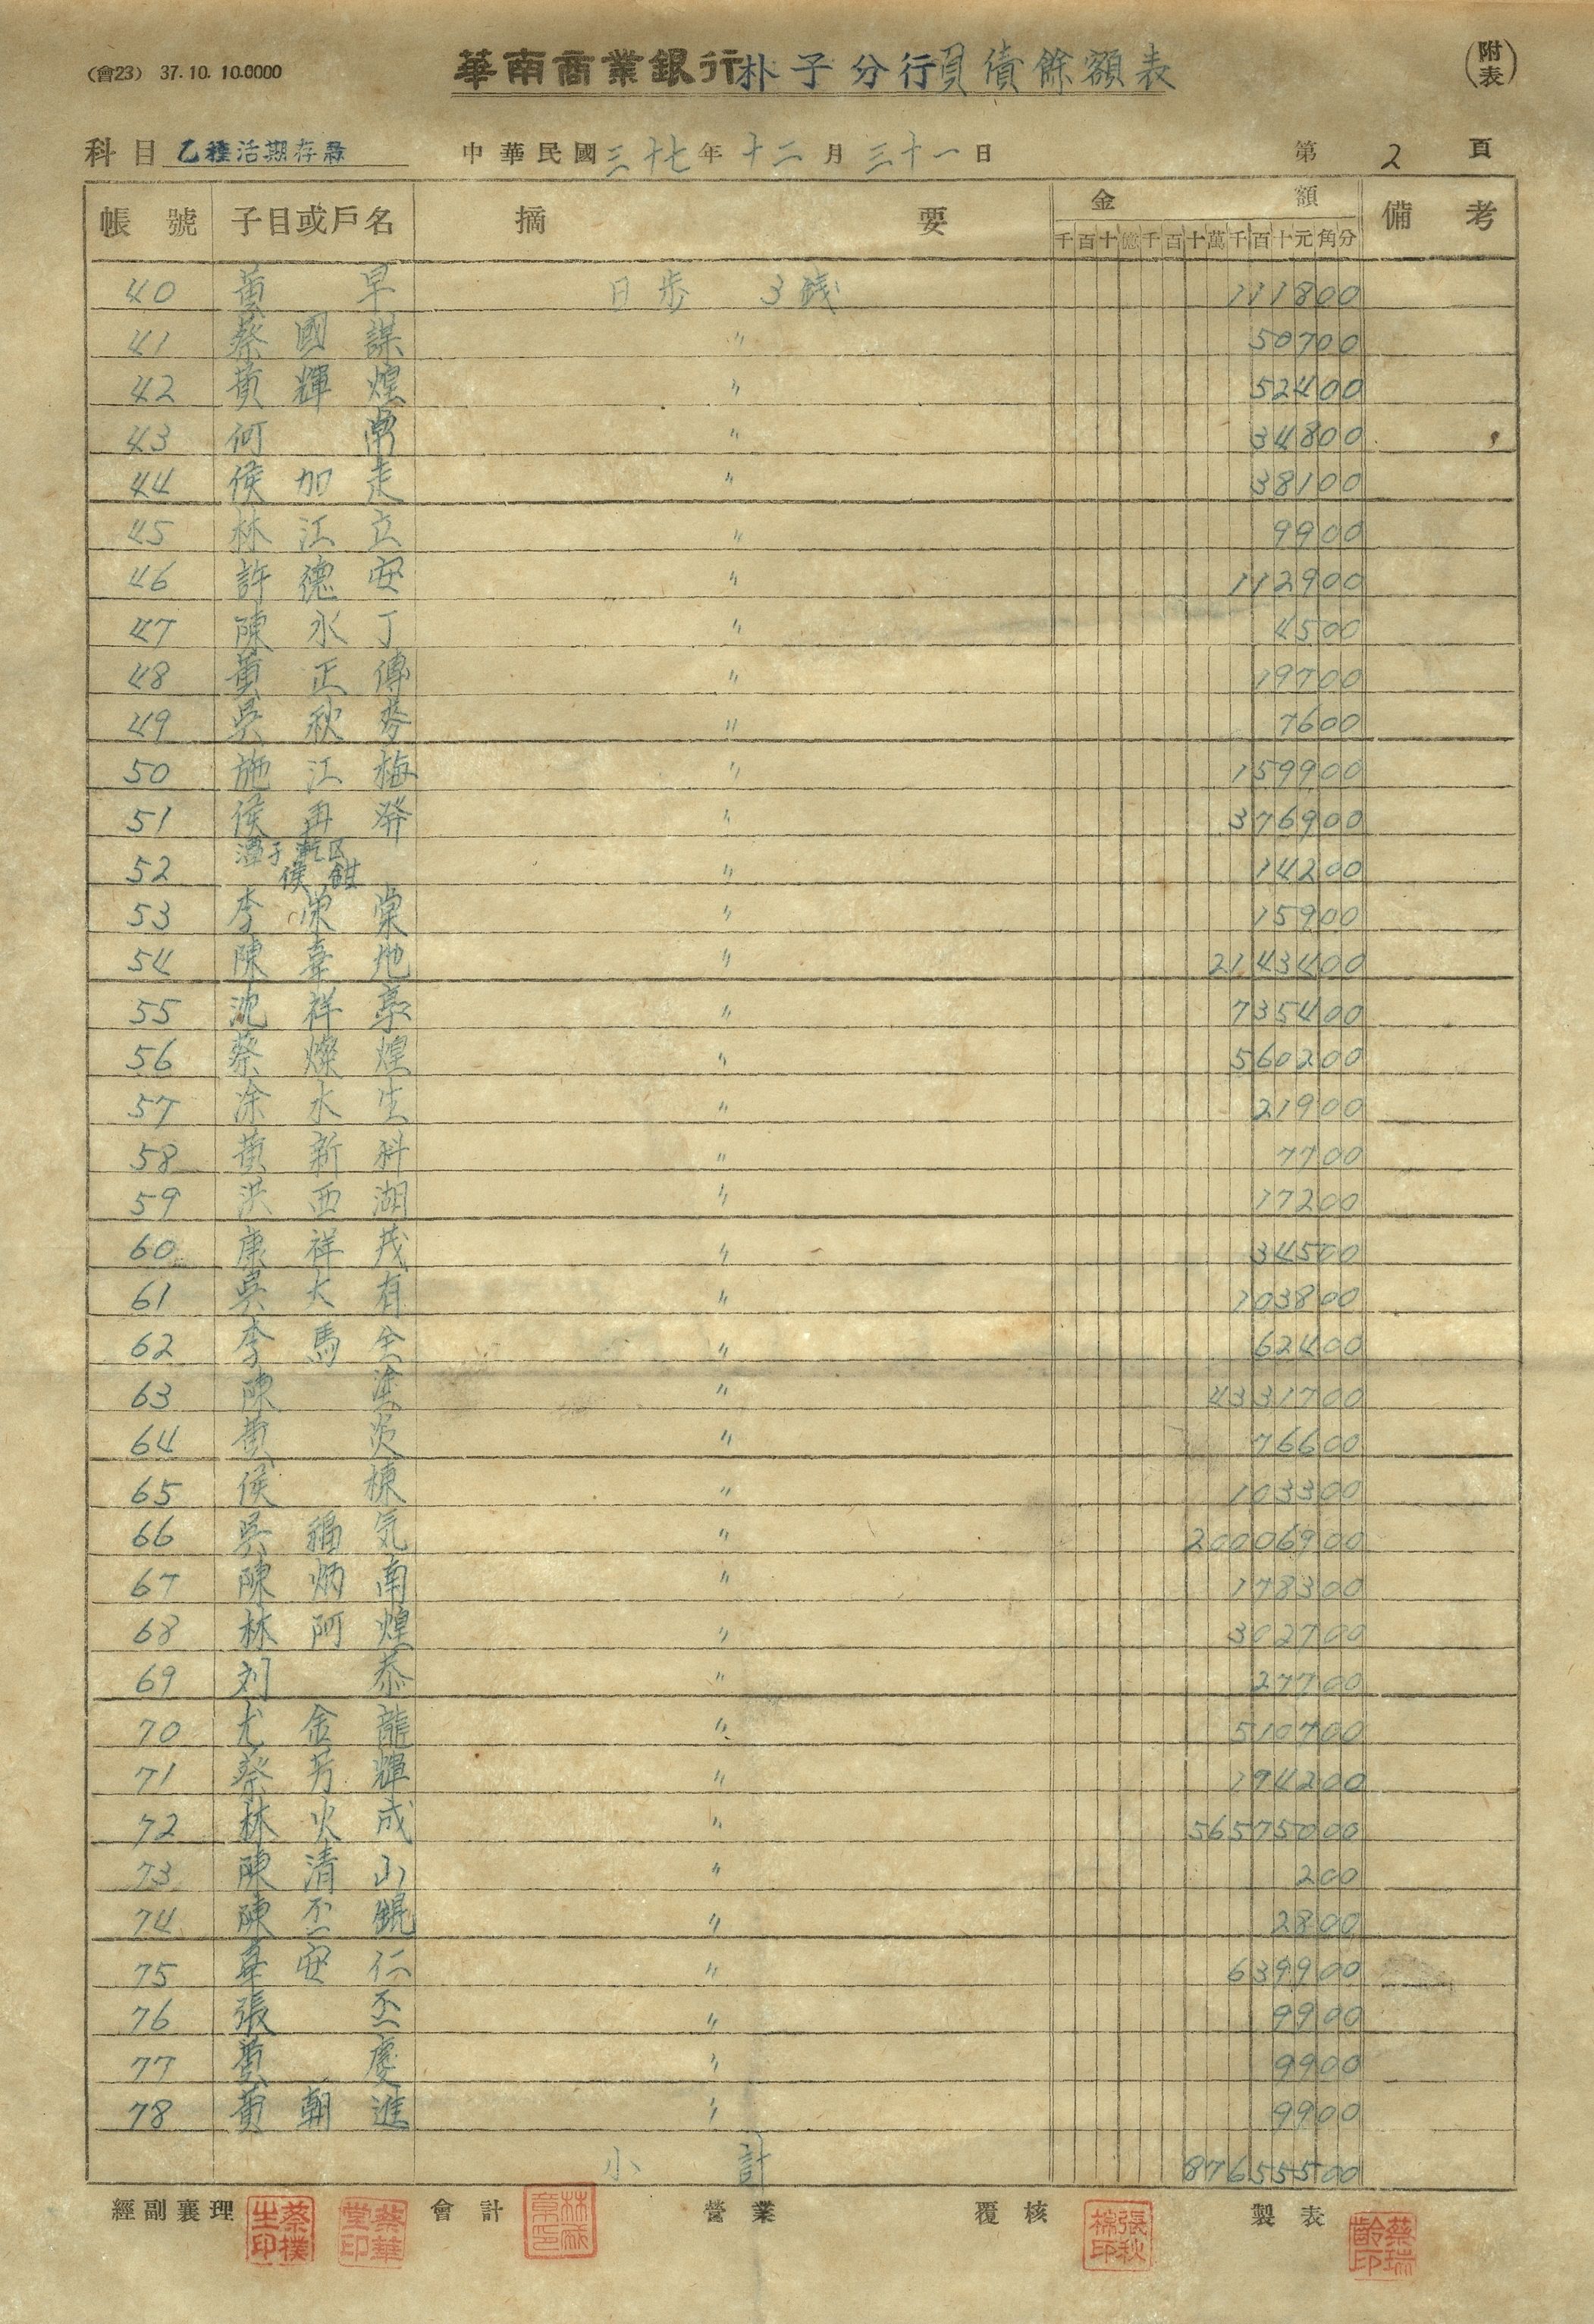 (會23) 37.10.10.0000
華南商業銀行朴子分行負債餘額表
(附表)
科目 乙種活期存款 中華民國三十七年十二月三十一日 第2頁
帳號 子目或戶名 摘要 金額 備考
千百十億千百十萬千百十元角分
40 黃早 日步 3錢 111800
41 蔡國謀 〃 50700
42 黃輝煌 〃 52400
43 何 〃 34800
44 侯加走 〃 38100
45 林江立 〃 9900
46 許德安 〃 112900
47 陳永丁 〃 4500
48 黃正傳 〃 19700
49 吳秋 〃 7600
50 施江梅 〃 159900
51 侯再發 〃 376900
52 侯 〃 14200
53 李榮棠 〃 15900
54 陳 〃 2143400
55 沈祥 〃 735400
56 蔡燦煌 〃 560200
57 涂水生 〃 21900
58 黃新科 〃 7700
59 洪西湖 〃 17200
60 康祥茂 〃 34500
61 吳大有 〃 103800
62 李馬 〃 62400
63 陳 〃 4331700
64 黃炎 〃 76600
65 侯棟 〃 103300
66 吳福気 〃 20006900
67 陳炳南 〃 178300
68 林阿煌 〃 302700
69 刘恭 〃 27700
70 尤金龍 〃 510700
71 蔡芳輝 〃 194200
72 林火成 〃 56575000
73 陳清山 〃 200
74 陳丕錕 〃 2800
75 辜安仁 〃 639900
76 張丕 〃 9900
77 黃慶 〃 9900
78 黃朝進 〃 9900
小計 87655500
經副襄理 蔡樸生印 蔡華堂印 會計 營業 覆核 張秋棉印 製表 蔡瑞齡印